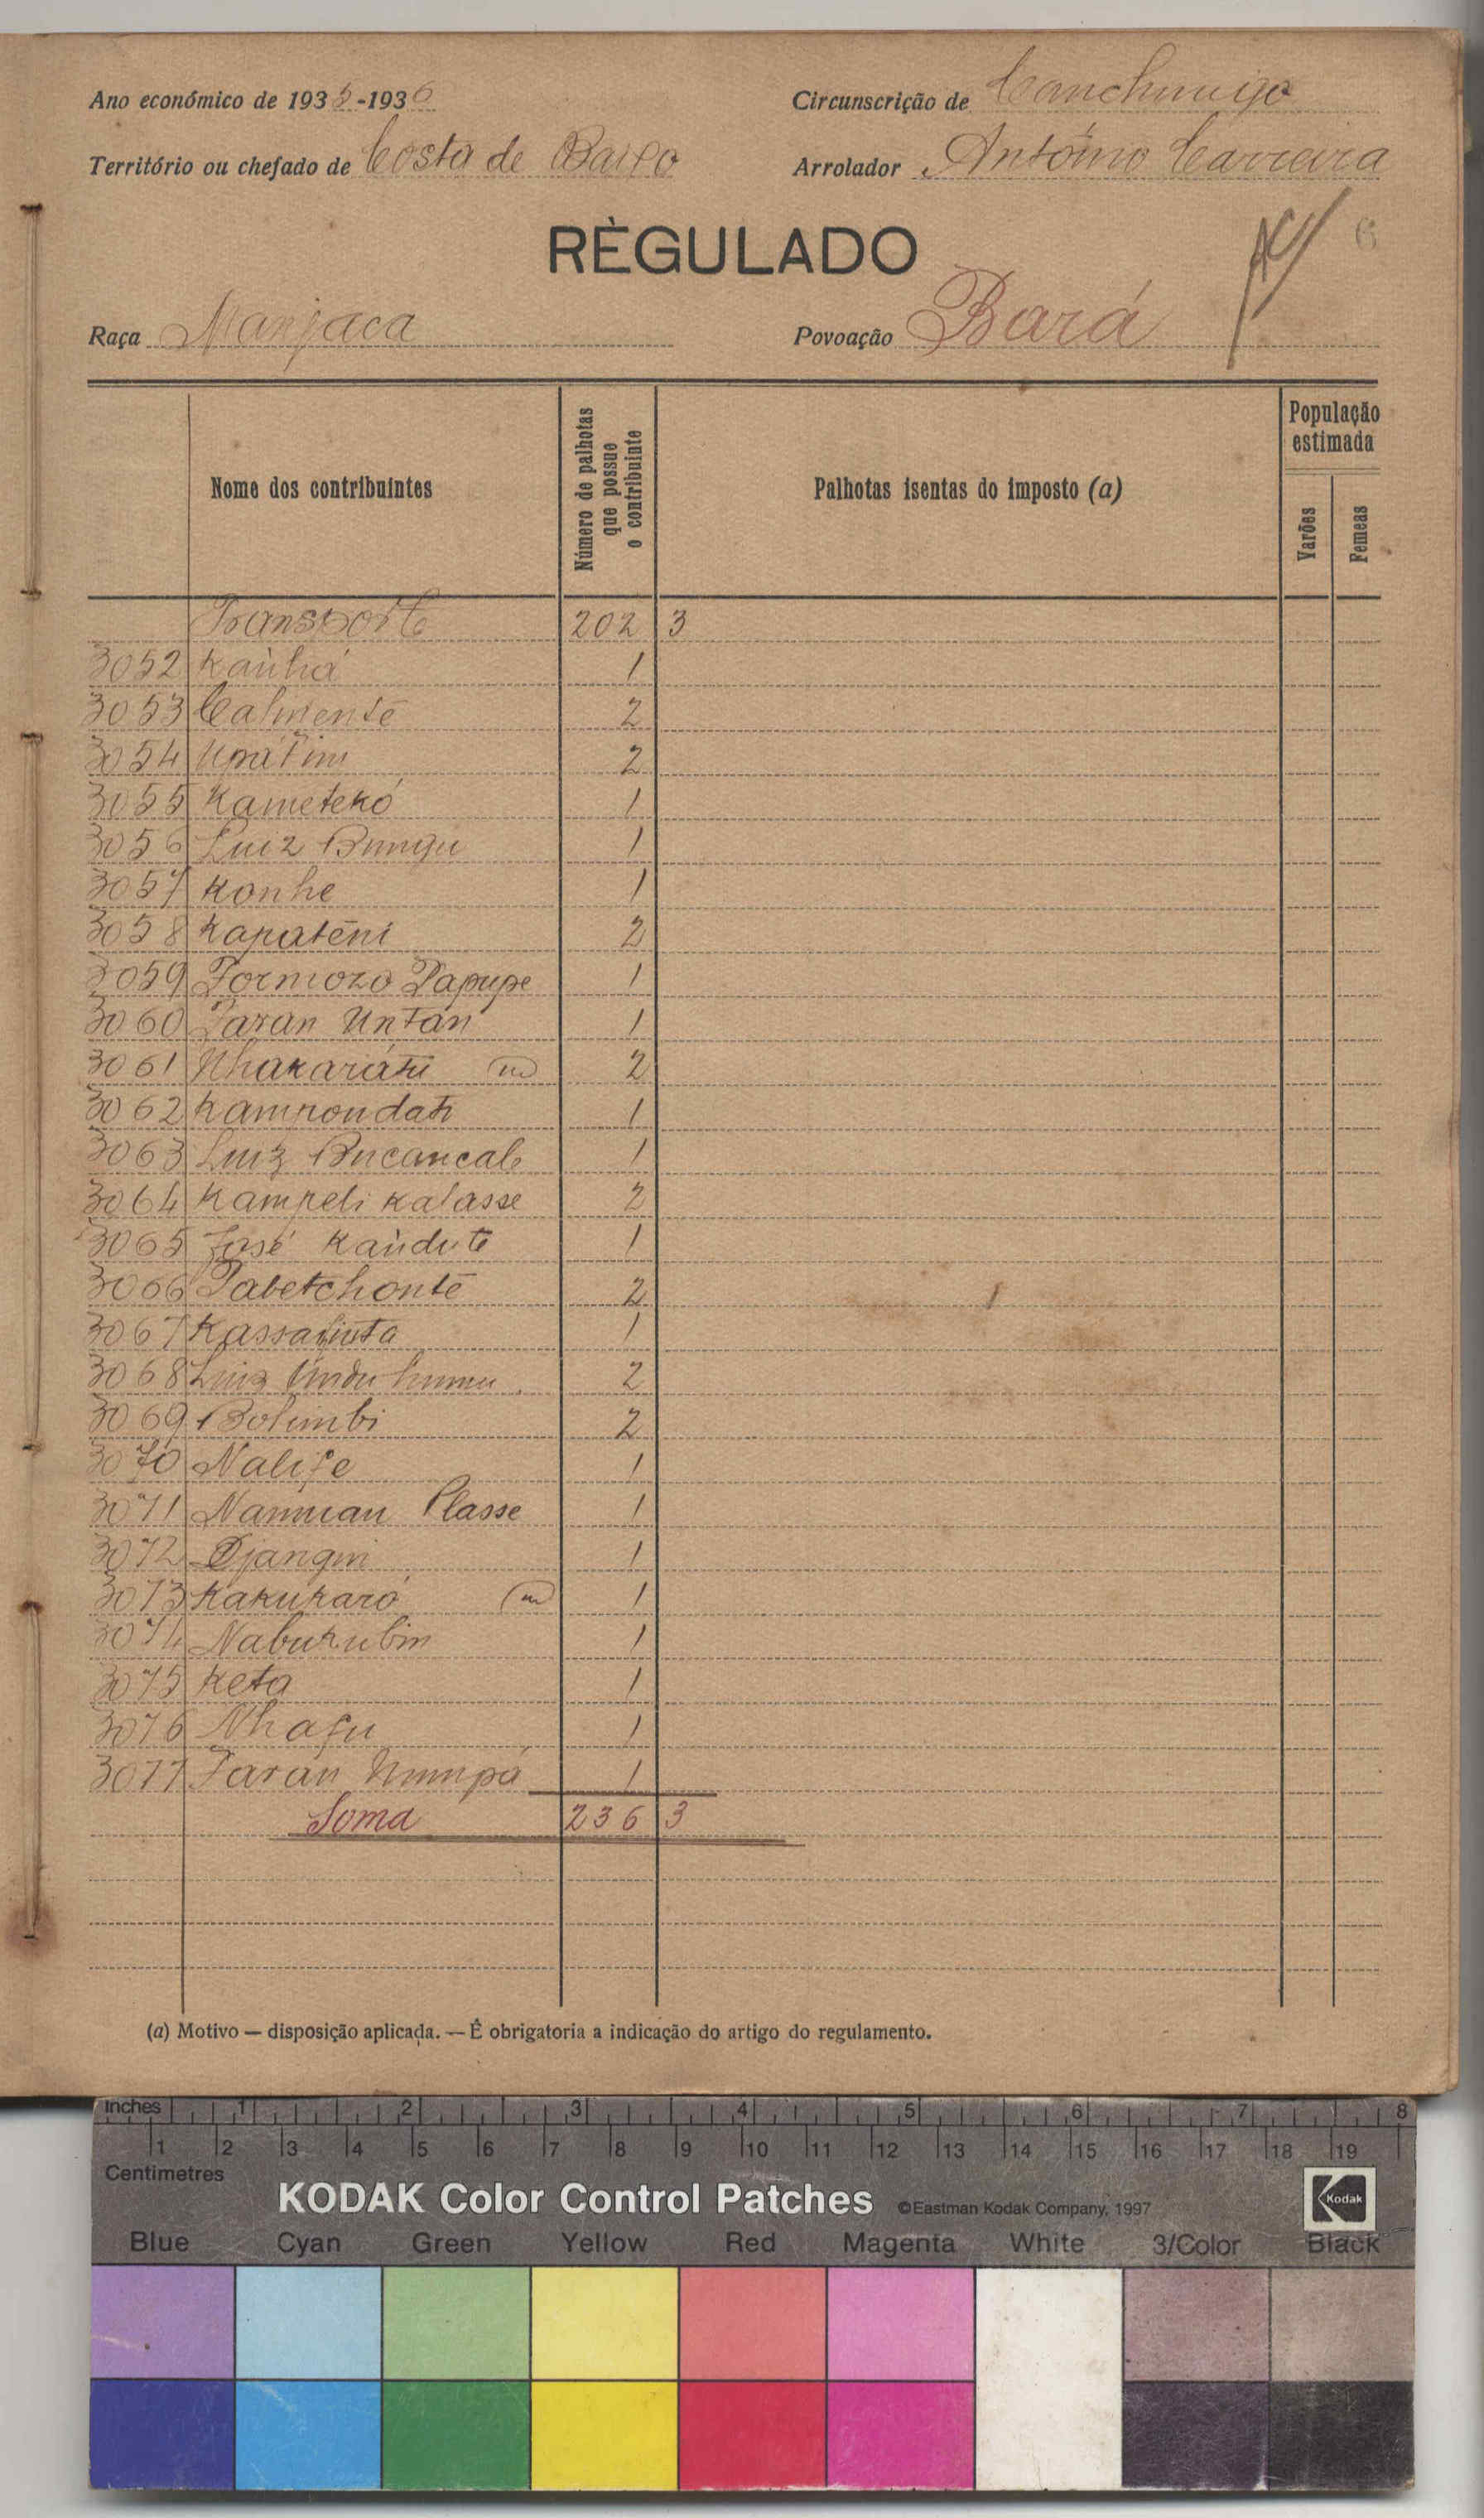 Ano económico de 1935-1936 Circunscrição de Canchungo
Território ou chefado de Costa de Baixo Arrolador António Carreira
RÈGULADO
6
Raça Manjaca Povoação Bará
Nome dos contribuintes
Número de palhotas que possue o contribuinte
Palhotas isentas do imposto (a)
População estimada
Varões
Femeas
Transporte 202 3
3052 Kaùhá 1
3053 Calmentê 2
3054 Upátim 2
3055 Kametekó 1
3056 Luiz Bungu 1
3057 Konhe 1
3058 Kapatêni 2
3059 Formozo Papupe 1
3060 Jaran Untán 1
3061 Nhakaráti (m) 2
3062 Kampondati 1
3063 Luiz Bucancale 1
3064 Kampeli Kalasse 2
3065 José Kaùdute 1
3066 Pabetchontê 2
3067 1
3068 Luiz 2
3069 Bolimbi 2
3070 Nalife 1
3071 Nanman Plasse 1
3072 Djangui 1
3073 Kakukaró (m) 1
3074 Nabukubim 1
3075 Keta 1
3076 Nhafu 1
3077 Jaran Numpá 1
Soma 236 3
(a) Motivo — disposição aplicada. — É obrigatoria a indicação do artigo do regulamento.
Inches 1 2 3 4 5 6 7 8
1 2 3 4 5 6 7 8 9 10 11 12 13 14 15 16 17 18 19
Centimetres
KODAK Color Control Patches ©Eastman Kodak Company, 1997 Kodak
Blue Cyan Green Yellow Red Magenta White 3/Color Black